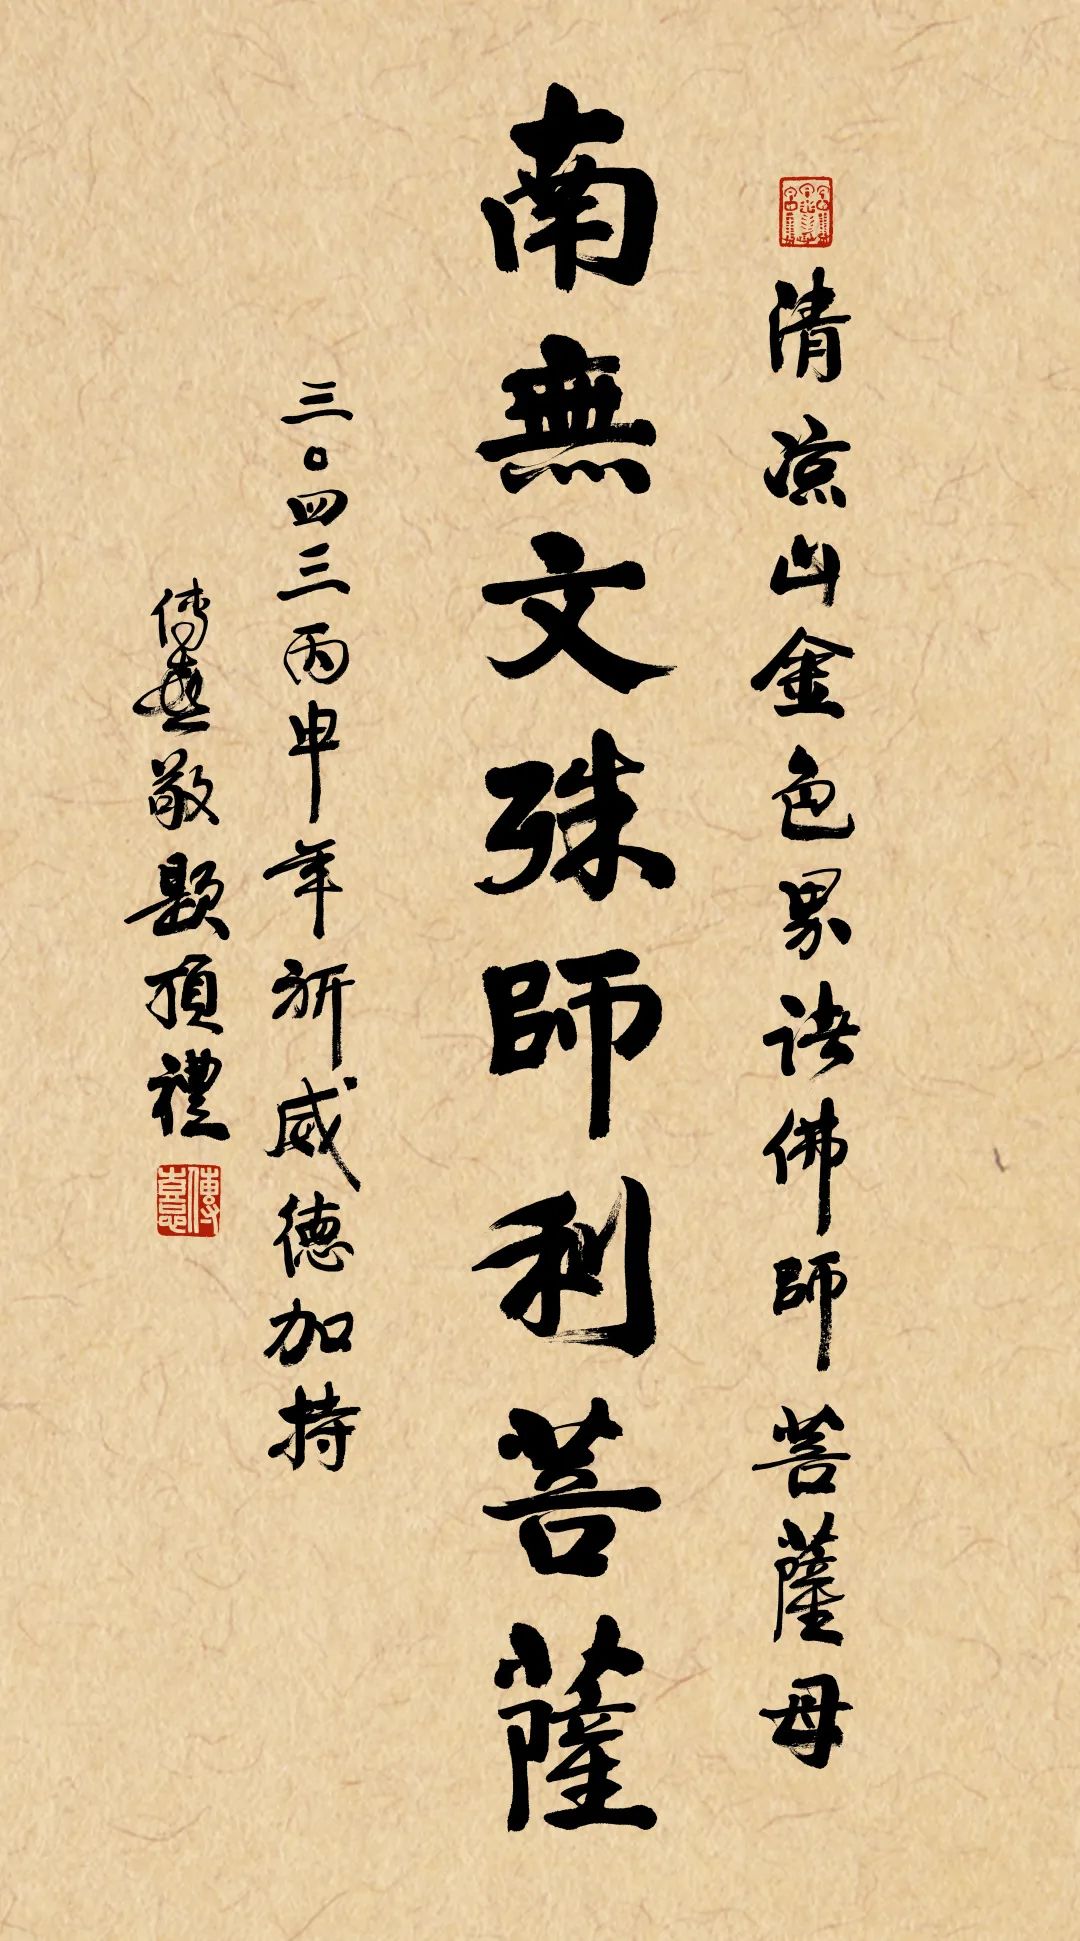 清涼山金色界諸佛師菩薩母
南無文殊師利菩薩
三〇四三丙申年祈威德加持
傳熹敬題頂禮
傳熹